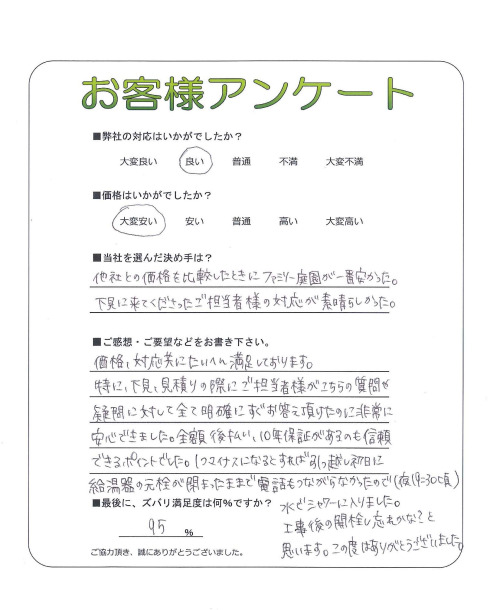 お客様アンケート
■弊社の対応はいかがでしたか？
大変良い 良い 普通 不満 大変不満
■価格はいかがでしたか？
大変安い 安い 普通 高い 大変高い
■当社を選んだ決め手は？
他社との価格を比較したときにファミリー庭園が一番安かった。
下見に来てくださったご担当者様の対応が素晴らしかった。
■ご感想・ご要望などをお書き下さい。
価格、対応共にたいへん満足しております。
特に、下見、見積りの際にご担当者様がこちらの質問や
疑問に対して全て明確にすぐお答え頂けたのに非常に
安心できました。全額後払い、10年保証があるのも信頼
できるポイントでした。1つマイナスになるとすれば引っ越し初日に
給湯器の元栓が閉まったままで電話もつながらなかったので（夜19:30頃）
水でシャワーに入りました。
工事後の開栓し忘れかな？と
思います。この度はありがとうございました。
■最後に、ズバリ満足度は何%ですか？
95 %
ご協力頂き、誠にありがとうございました。